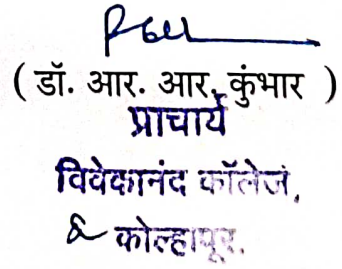 ( डॉ. आर. आर. कुंभार )
प्राचार्य
विवेकानंद कॉलेज,
कोल्हापूर.